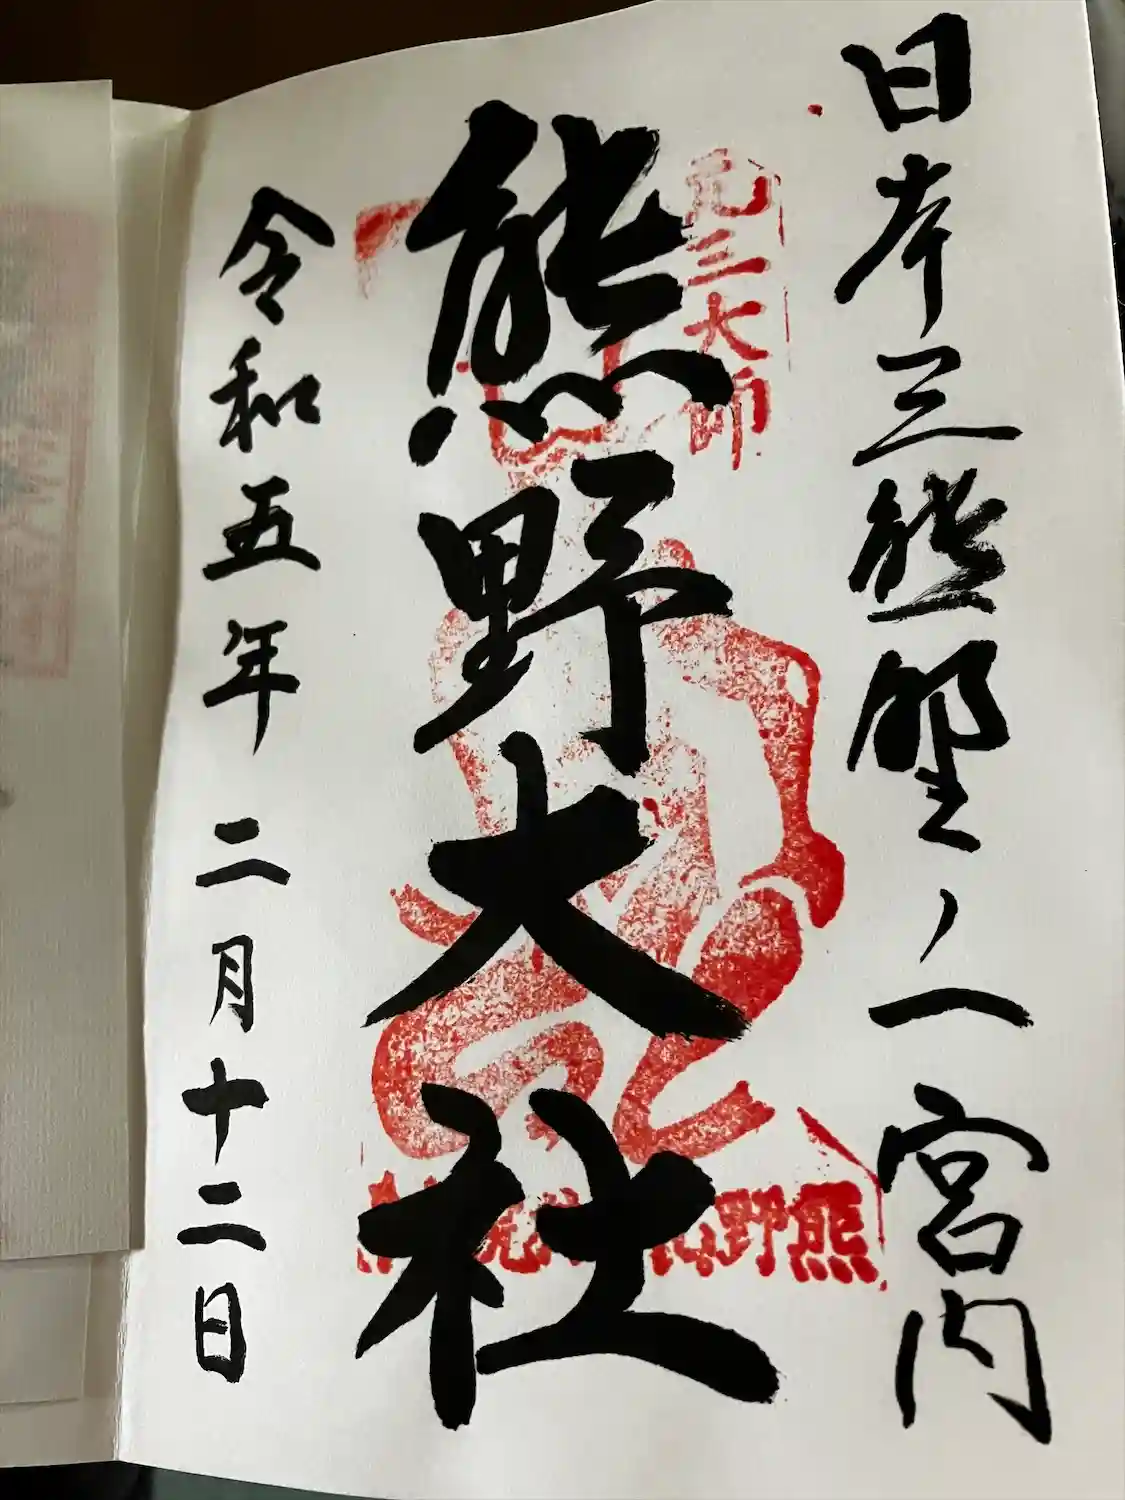 日本三熊野ノ一宮内
元三大師
熊野大社
熊野
令和五年二月十二日